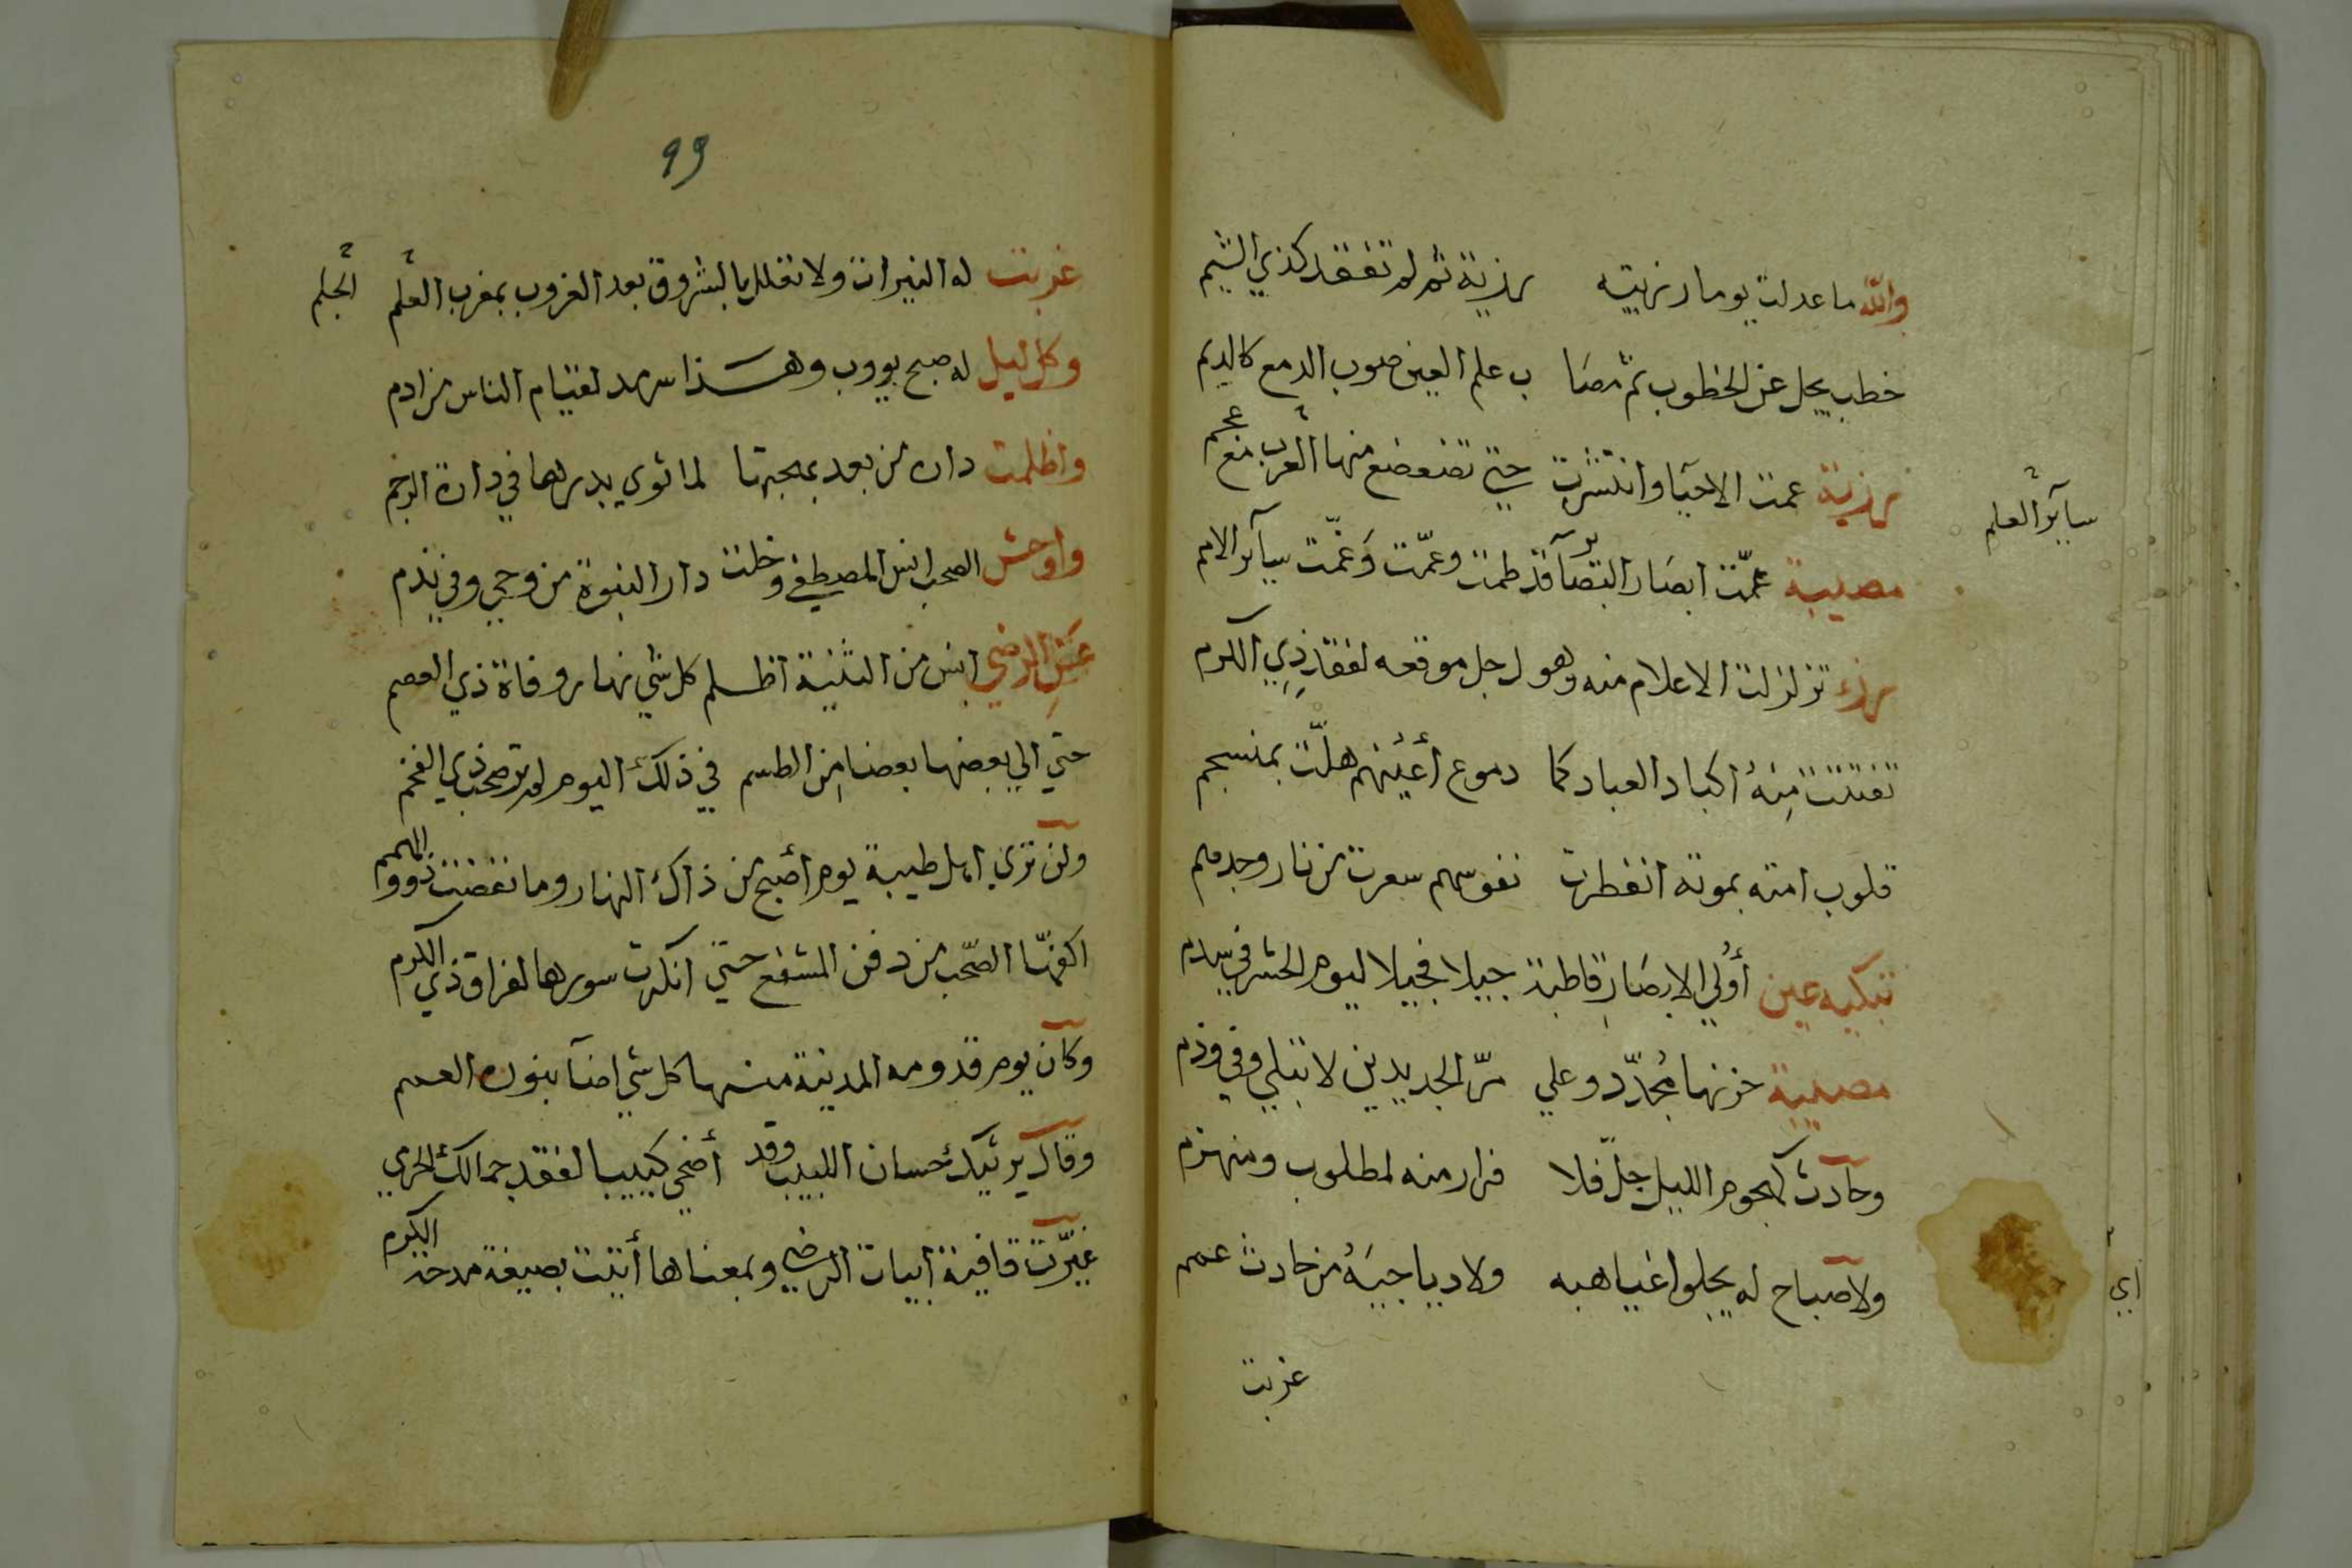 والله ما عدلت يوما رزيته رزية ثم لم تفقد كذي الشيم
خطب يجل عن الخطوب ثم مصا ب علم العين صوب الدمع كالديم
رزية عمت الاحيآ وانتشرت حتي تضعضع منها العرب مع عجم
سآير العلم
مصيبة عمّت ابصار البصآير قد طمت وعمّت وَغمّت سآير الامم
رزء تزلزلت الاعلام منه وهو لجل موقعه لفقد ذِي الكرم
تفتتت مِنهُ اكباد العباد كما دموع أعْيُنهم هلّت بمنسجم
قلوب امته بموته انفطرت نفوسهم سعرت من نار وجدهم
تبكيه عين أولي الابصار قاطبة جيلا فجيلا ليوم الحشر في سدم
مصيبة حزنها مُجدّد وعلي مرّ الجديدين لا تبلي وفي وذم
وحادث كهجوم الليل جلّ فلا فرار منه لمطلوب ومنهزم
ولا صباح له يجلوا غياهبه ولا دياجيهُ من حادث عمم
اي
غربت
99
غربت له النيرات ولا تقلل بالشروق بعد الغروب بمغرب العلم
الحلم
وكل ليل له صبح يووب وهــذا سرمد لقيام الناس من ادم
واظلمت دار من بعد بهجتها لما ثوي بدرها في دارة الرجم
واوحش الصحب انس المصطفي وخلت دار النبوة من وحي وفي ندم
عَنِ الرضي انس من الثنية اظلم كل شي نهار وفاة ذي العصم
حتي الي بعضها بعضا مِن الطسم في ذلك اليوم لم تر صحب ذي الفخم
ولن تري اهل طيبة يوم أصبح من ذاك النهار وما نفضت ذووا الهمم
اكفهّا الصّحب من دفن المشفع حتي انكرت سورها لفراق ذي الكرم
وكان يوم قدومه المدينة منها كل شي اضآ بنوره العمم
وقال يرثيك حسان اللبيب وقد أضحي كبيبا لفقد جمالك الحري
غيّرت قافية ابيات الرضي وبمعناها أتيت بصيغة مدحة الكرم